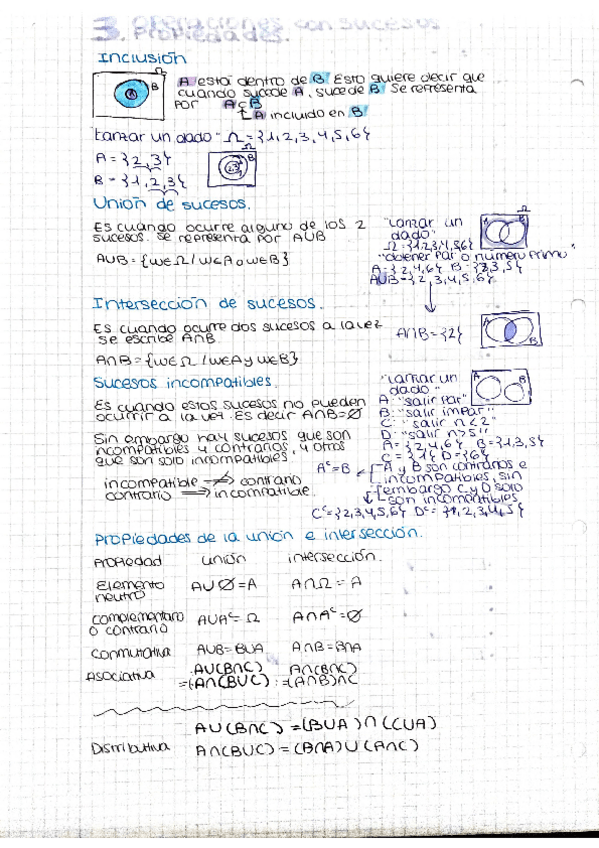 3. Operaciones con sucesos
Propiedades.
Inclusión
A está dentro de B. Esto quiere decir que
cuando sucede A, sucede B. Se representa
por A⊂B
↳ A incluido en B
A B Ω
Lanzar un dado - Ω = {1, 2, 3, 4, 5, 6}
A = {2, 3}
B = {1, 2, 3}
Unión de sucesos.
Es cuando ocurre alguno de los 2
sucesos. Se representa por A∪B
A∪B = {w∈Ω / w∈A o w∈B}
"Lanzar un
dado"
Ω = {1,2,3,4,5,6}
"obtener par o número primo"
A = {2, 4, 6} B = {2, 3, 5}
A∪B = {2, 3, 4, 5, 6}
Intersección de sucesos.
Es cuando ocurre dos sucesos a la vez
se escribe A∩B.
A∩B = {w∈Ω / w∈A y w∈B}
A∩B = {2}
A B
Sucesos incompatibles.
Es cuando estos sucesos no pueden
ocurrir a la vez. Es decir A∩B = ∅
Sin embargo hay sucesos que son
incompatibles y contrarios, y otros
que son solo incompatibles.
incompatible ⇏ contrario
contrario ⟹ incompatible.
"Lanzar un
dado"
A B
A: "salir par"
B: "salir impar"
C: "salir n<2"
D: "salir n>5"
A = {2, 4, 6} B = {1, 3, 5}
C = {1} D = {6}
Aᶜ = B ← A y B son contrarios e
incompatibles, sin
embargo C y D solo
son incompatibles
Cᶜ = {2,3,4,5,6} Dᶜ = {1, 2, 3, 4, 5}
Propiedades de la unión e intersección.
Propiedad unión intersección.
Elemento neutro A∪∅ = A A∩Ω = A
complementario o contrario A∪Aᶜ = Ω A∩Aᶜ = ∅
Conmutativa A∪B = B∪A A∩B = B∩A
Asociativa A∪(B∩C) A∩(B∩C)
=(A∩(B∪C) =(A∩B)∩C
A∪(B∩C) = (B∪A)∩(C∪A)
Distributiva A∩(B∪C) = (B∩A)∪(A∩C)